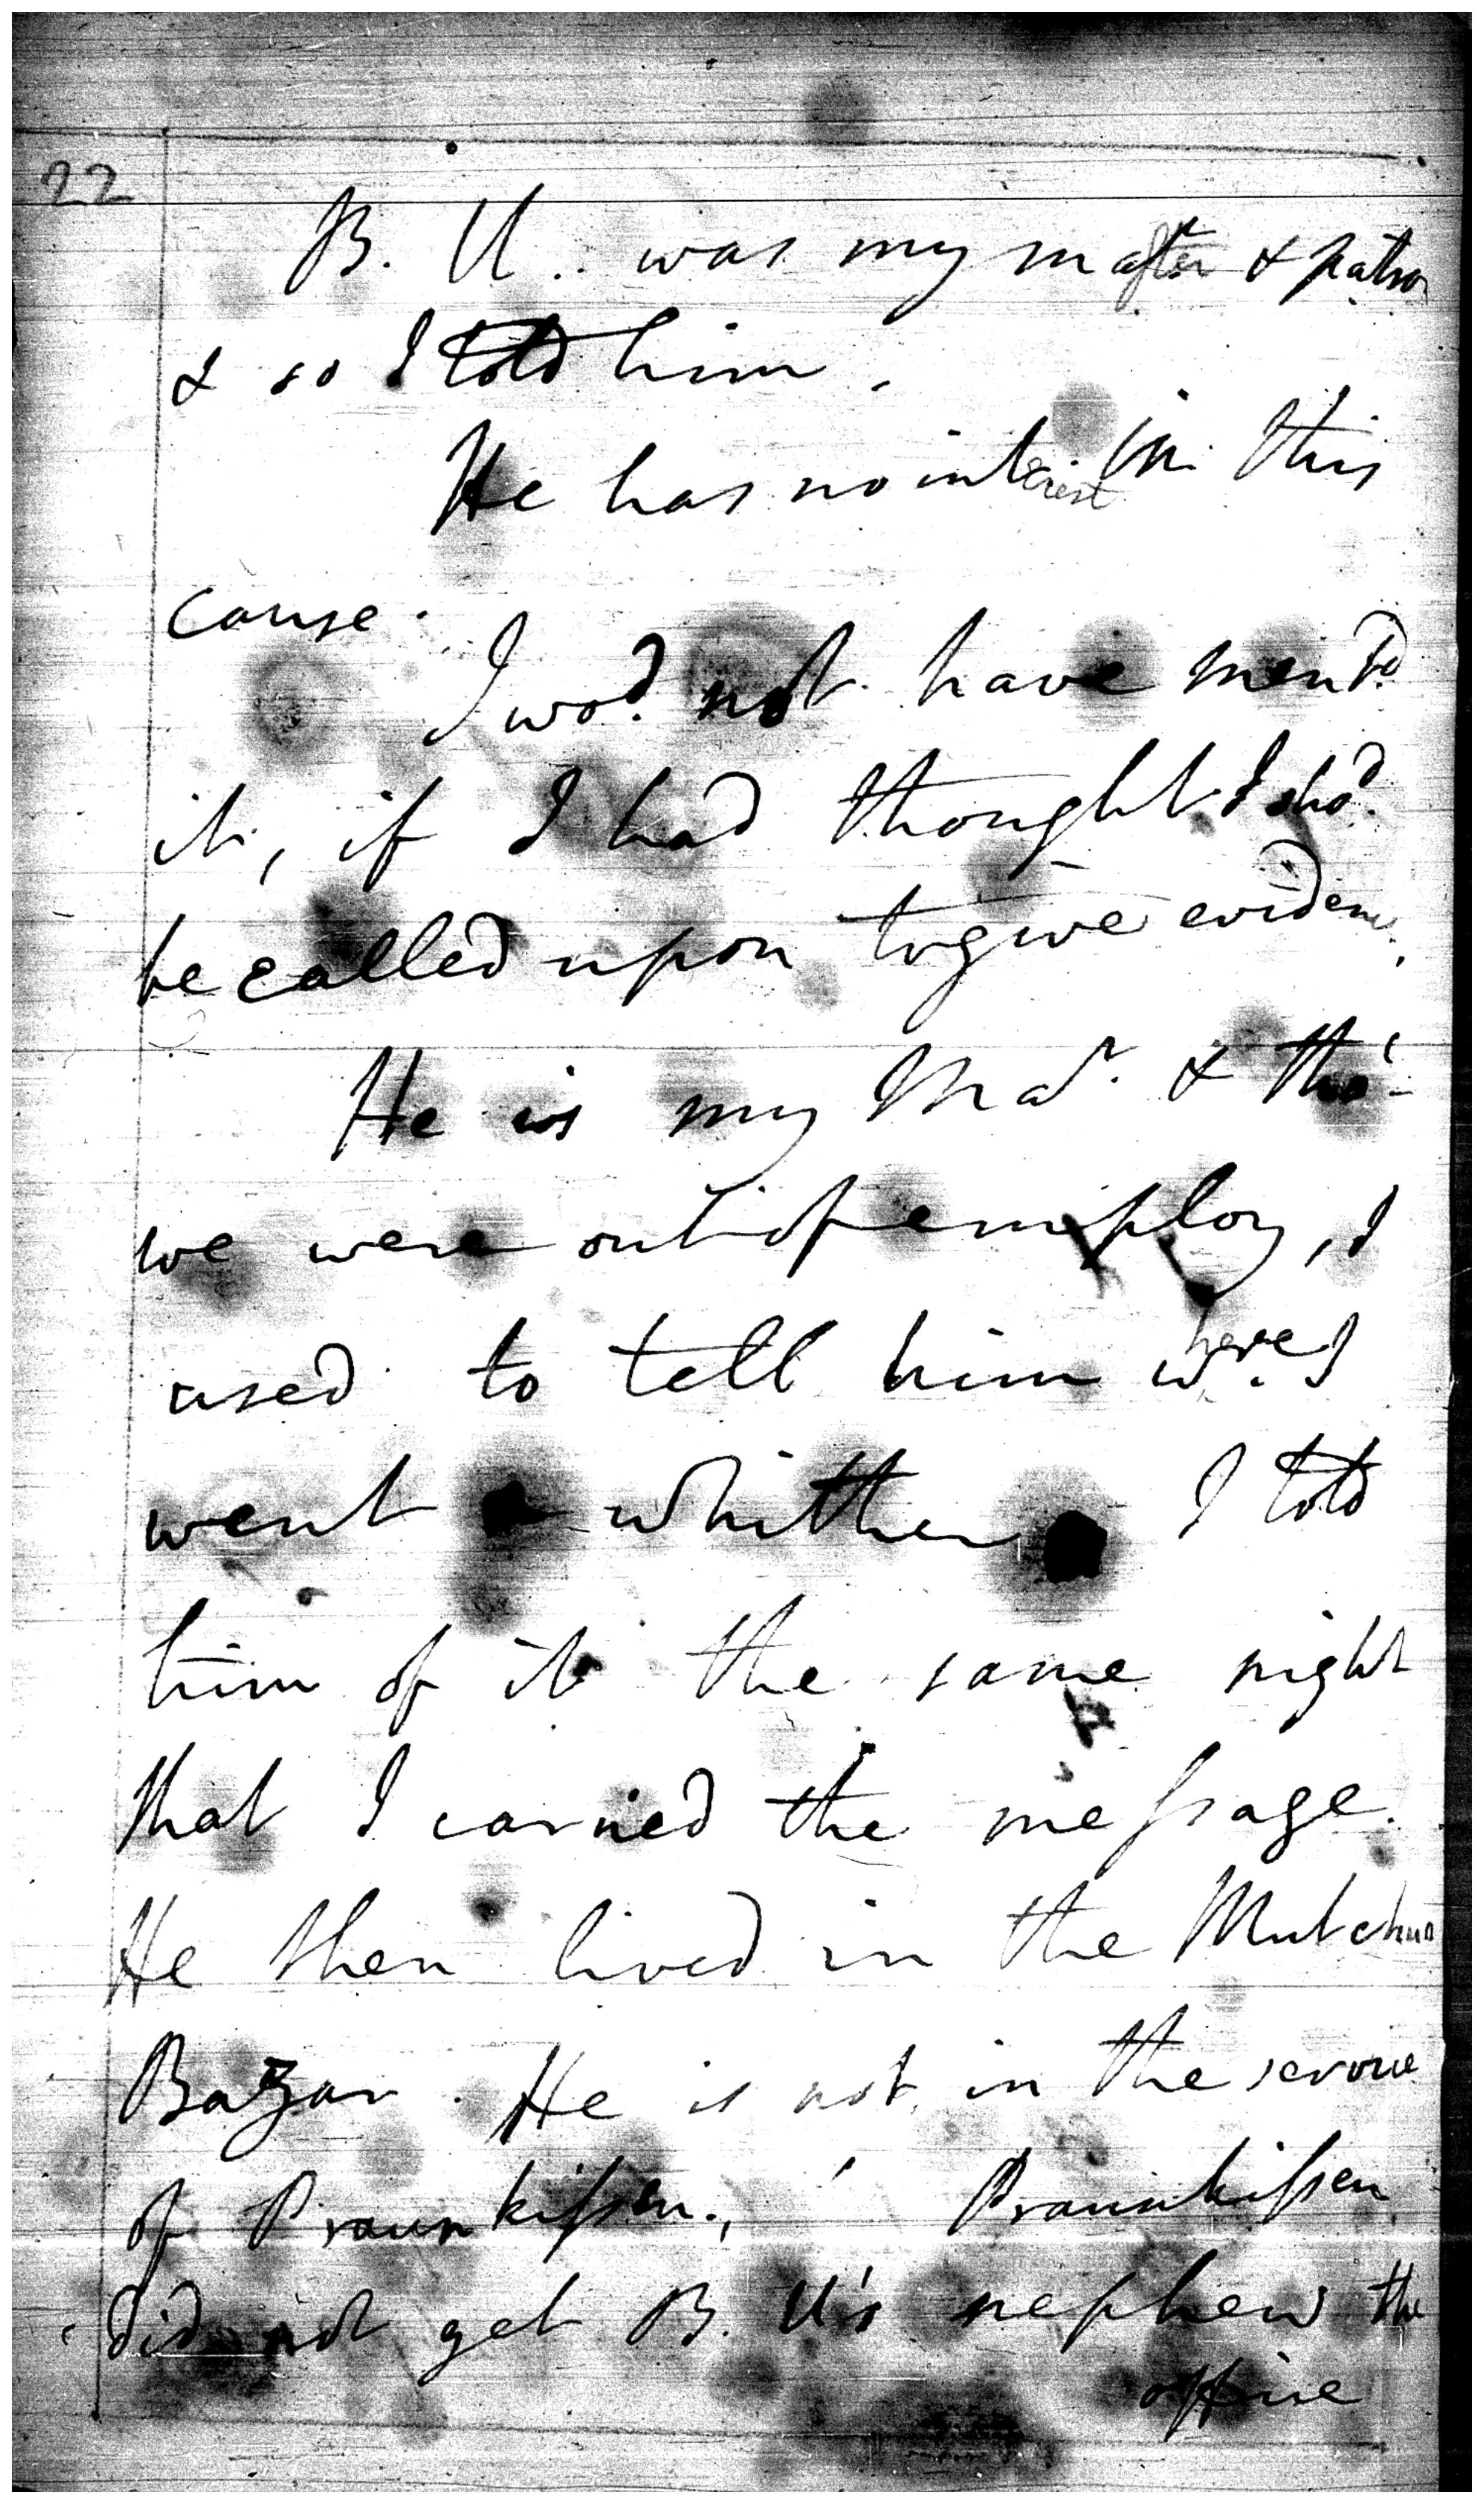 22
B. U. was my master & patron
& so I told him.
He has no interest in this
cause.
I wod. not have mentd.
it, if I had thought I shod.
be called upon to give evidence.
He is my Mar. & tho'
we were out of employ, I
used to tell him where I
went whither I told
him of it the same night
that I carried the message.
He then lived in the Mutchua
Bazar. He is not in the service
of Praunkissen., Praunkissen
did not get B. U's nephew the
office